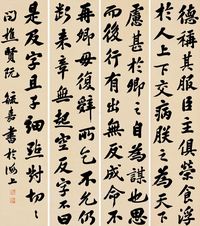 德稱其服臣主俱榮食浮
於人上下交病為天下
慮甚於卿之自為謀也思
而後行有出無反成命不
再卿毋復辭所乞不允仍
斷來章無起空反字不曰
是反字且子細點對切切
問樵賢阮 嘉書於海上